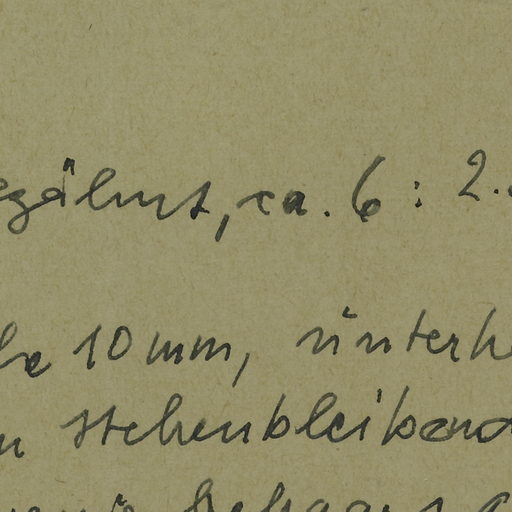 gezähnt, ca. 6 : 2.
10 mm, unterh
n stehenbleibend